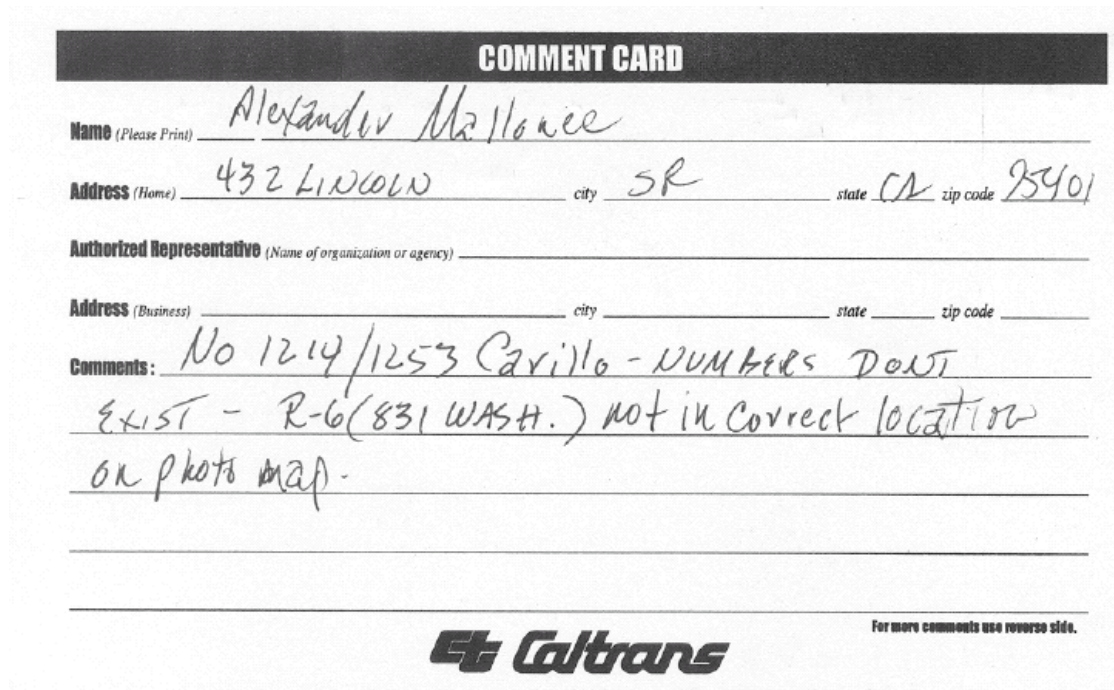 COMMENT CARD
Name (Please Print) Alexander Mallonee
Address (Home) 432 LINCOLN city SR state CA zip code 95401
Authorized Representative (Name of organization or agency)
Address (Business) city state zip code
Comments: No 1214/1253 Carillo - NUMBERS DONT
EXIST - R-6 (831 WASH.) not in correct location
on photo map.
For more comments use reverse side.
Ct Caltrans